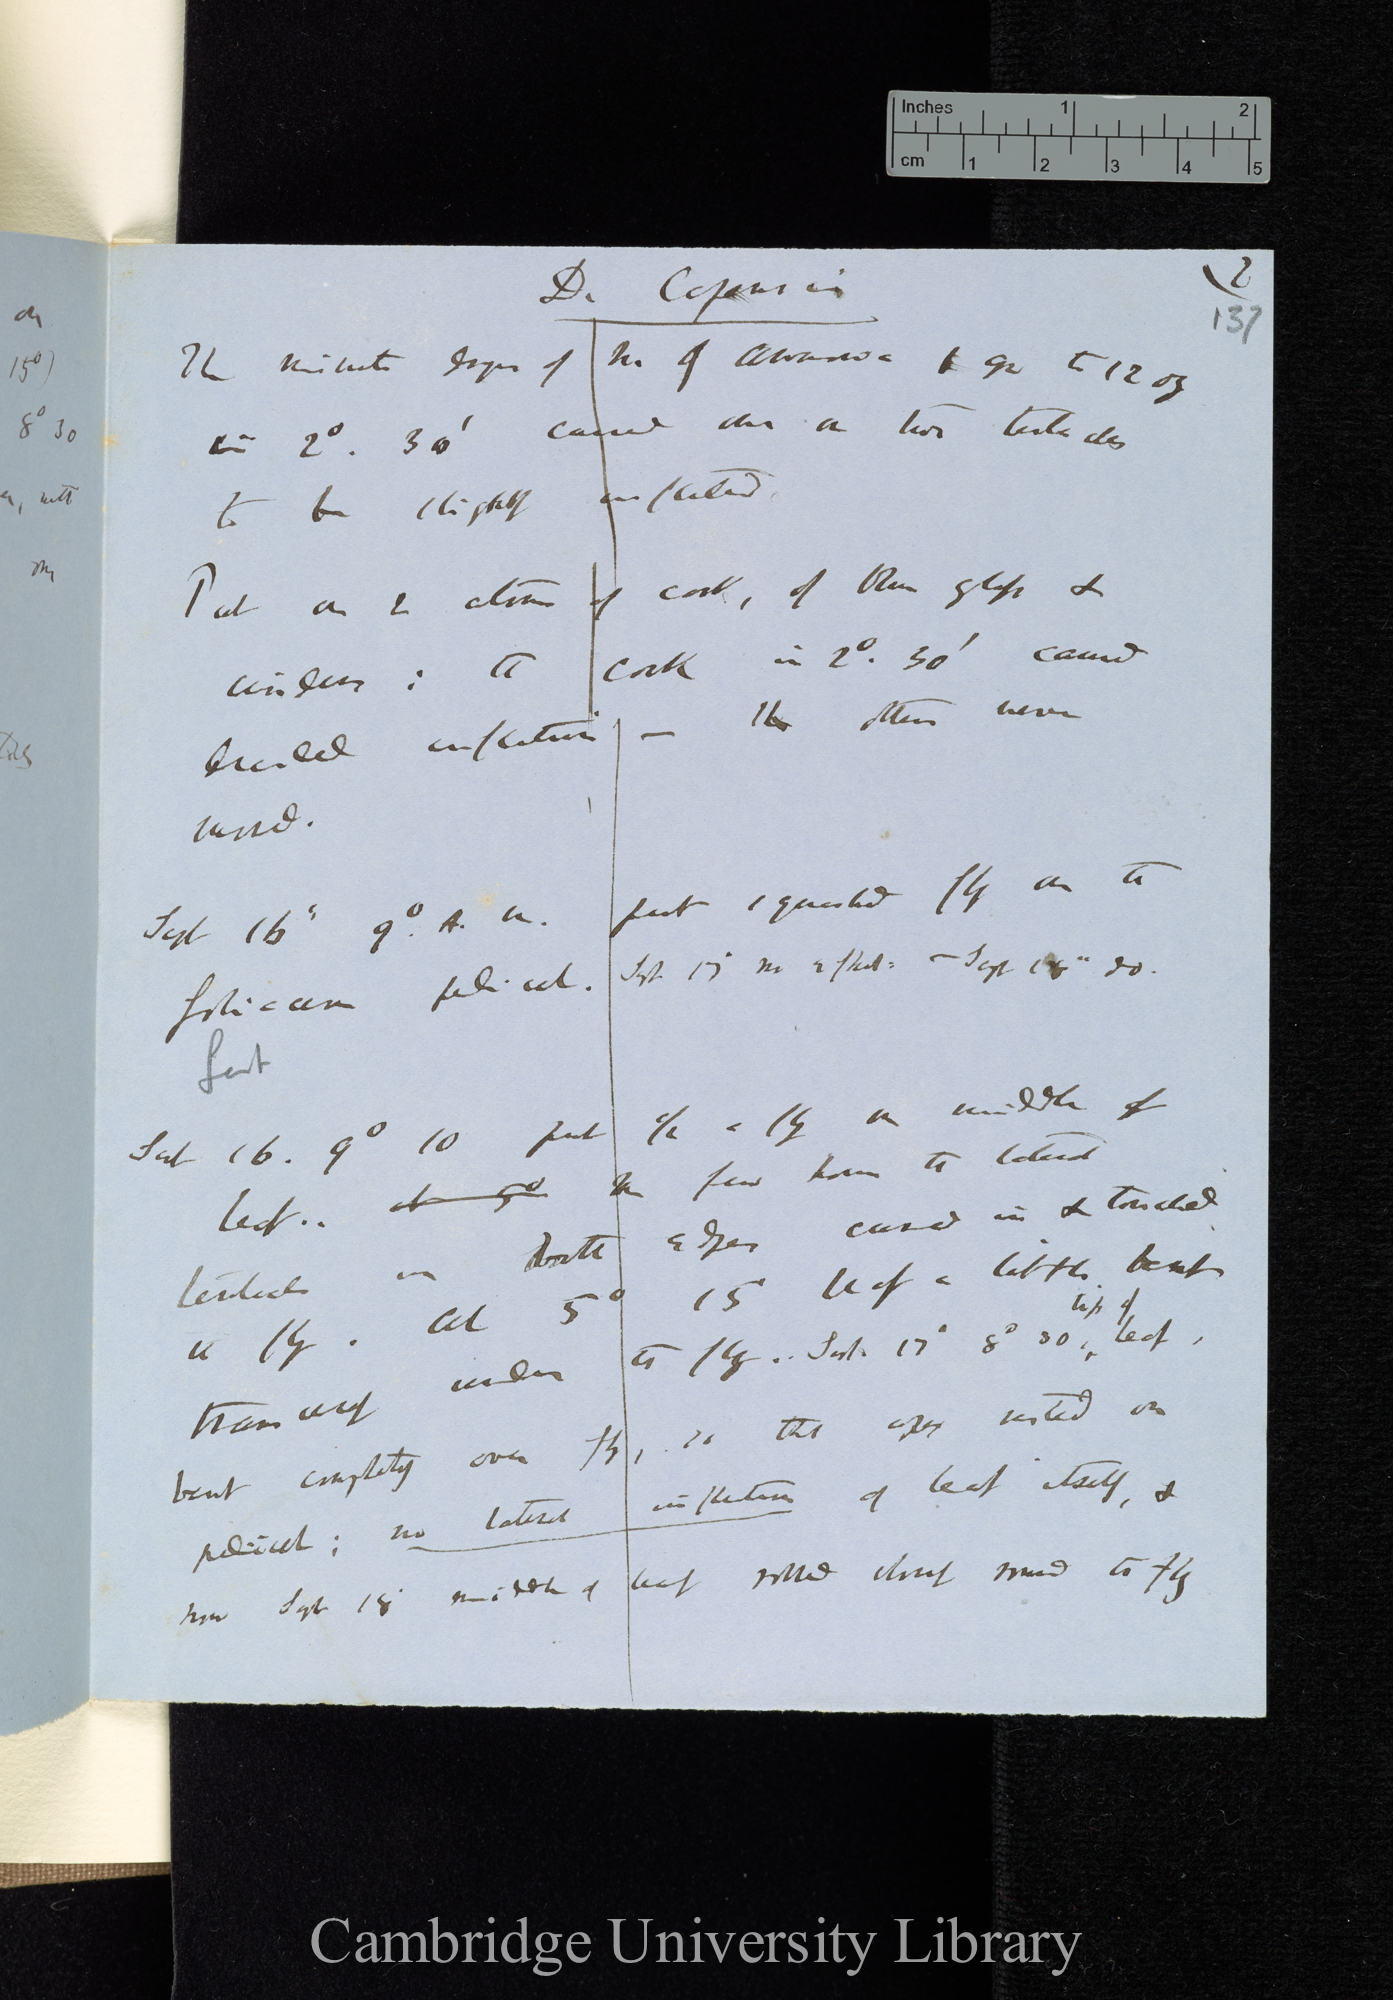 Inches 1 2
cm 1 2 3 4 5
2
137
D. Capensis
The minute drops of N. of Ammonia 1 gr to 12 oz
in 2°. 30' caused one or two tentacles
to be slightly inflected.
Put on 2 atoms of cork, of blue glass &
cinders; the cork in 2°. 30' caused
decided inflection — The others never
moved.
Sept 16" 9°. A. m. put squashed fly on the
foliaceous pedicel. Sept 17" no effect. — Sept 18" do.
Sept 16. 9° 10 put a fly on middle of
leaf.. at 5° In few hours the lateral
tentacles on both edges curved in & touched
the fly. At 5° 15' leaf a little bent
tip of
transversely under the fly.. Sept. 17" 8° 30, leaf,
bent completely over fly, so that apex rested on
pedicel; no lateral inflection of leaf itself, &
now Sept 18" middle of leaf rolled closely round the fly
on
15°)
8° 30
with
Cambridge University Library